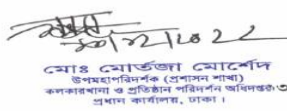 মোঃ মোর্তজা মোর্শেদ
উপমহাপরিদর্শক (প্রশাসন শাখা)
কলকারখানা ও প্রতিষ্ঠান পরিদর্শন অধিদপ্তর
প্রধান কার্যালয়, ঢাকা।